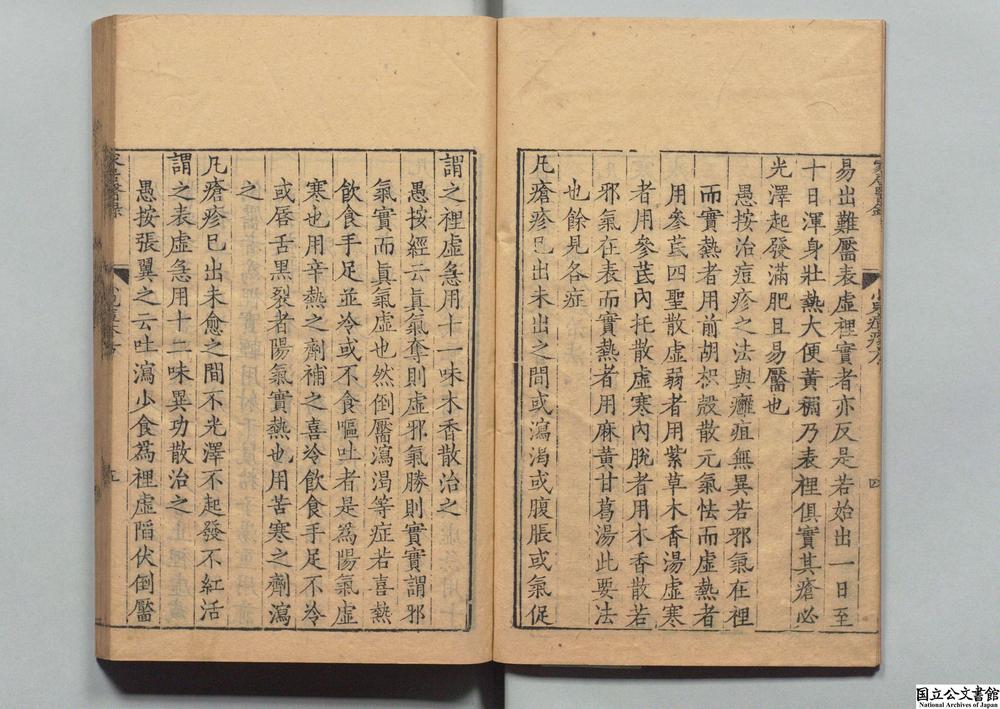 易出難靨表虛裡實者亦反是若始出一日至
十日渾身壯熱大便黃稠乃表裡俱實其瘡必
光澤起發滿肥且易靨也
愚按治痘疹之法與癰疽無異若邪氣在裡
而實熱者用前胡枳殼散元氣怯而虛熱者
用參芪四聖散虛弱者用紫草木香湯虛寒
者用參芪內托散虛寒內脫者用木香散若
邪氣在表而實熱者用麻黃甘葛湯此要法
也餘見各症
凡瘡疹已出未出之間或瀉渴或腹脹或氣促
謂之裡虛急用十一味木香散治之
愚按經云眞氣奪則虛邪氣勝則實實謂邪
氣實而眞氣虛也然倒靨瀉渴等症若喜熱
飲食手足並冷或不食嘔吐者是爲陽氣虛
寒也用辛熱之劑補之喜冷飲食手足不冷
或唇舌黑裂者陽氣實熱也用苦寒之劑瀉
之
凡瘡疹已出未愈之間不光澤不起發不紅活
謂之表虛急用十二味異功散治之
愚按張翼之云吐瀉少食爲裡虛陷伏倒靨
四
五
国立公文書館
National Archives of Japan